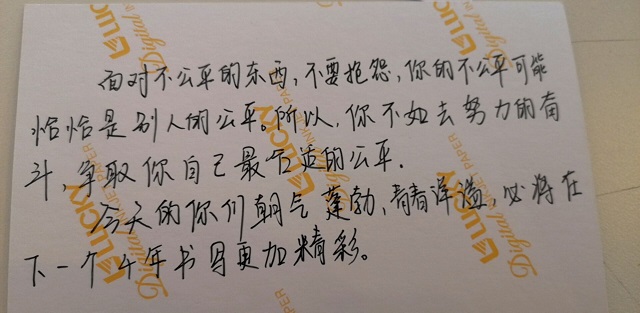 面对不公平的东西,不要抱怨,你的不公平可能
恰恰是别人的公平。所以,你不如去努力的奋
斗,争取你自己最合适的公平.
今天的你们朝气蓬勃,青春洋溢,必将在
下一个4年书写更加精彩。
LUCKY
Digital
LUCKY
Digital
INKJET PAPER
LUCKY
Digital
LUCKY
Digital
INKJET PAPER